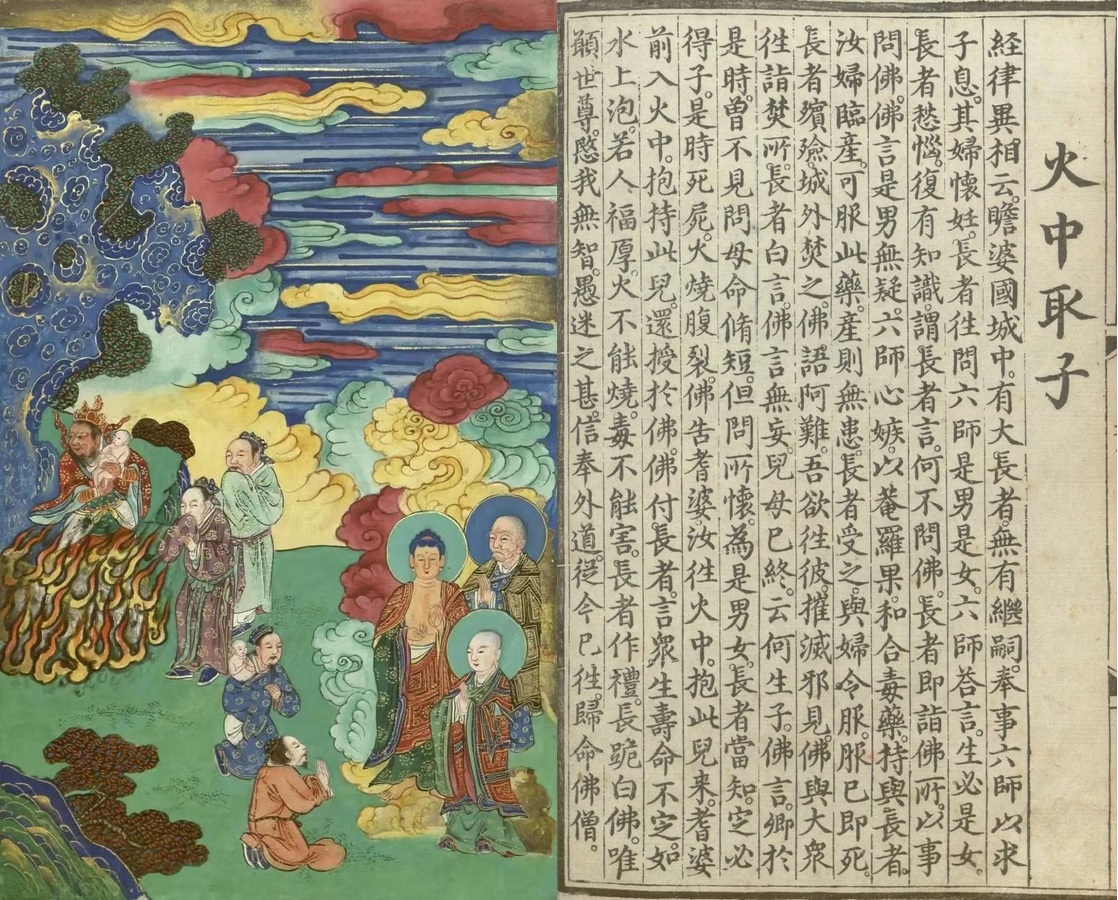 火中取子
経律異相云。瞻婆國城中。有大長者。無有繼嗣。奉事六師以求
子息。其婦懷妊。長者徃問六師是男是女。六師荅言。生必是女。
長者愁惱。復有知識謂長者言。何不問佛。長者即詣佛所。以事
問佛。佛言是男無疑。六師心嫉。以菴羅果。和合毒藥。持與長者。
汝婦臨產。可服此藥。產則無患。長者受之。與婦令服。服已即死。
長者殯殮城外焚之。佛語阿難。吾欲徃彼。摧滅邪見。佛與大衆
徃詣焚所。長者白言。佛言無妄。兒母已終。云何生子。佛言。卿於
是時。曾不見問母命脩短。但問所懷。為是男女。長者當知。定必
得子。是時死屍。火燒腹裂。佛告耆婆。汝徃火中。抱此兒来。耆婆
前入火中。抱持此兒。還授於佛。佛付長者。言衆生壽命不定。如
水上泡。若人福厚。火不能燒。毒不能害。長者作禮。長跪白佛。唯
願世尊。愍我無智。愚迷之甚。信奉外道。從今已徃。歸命佛僧。